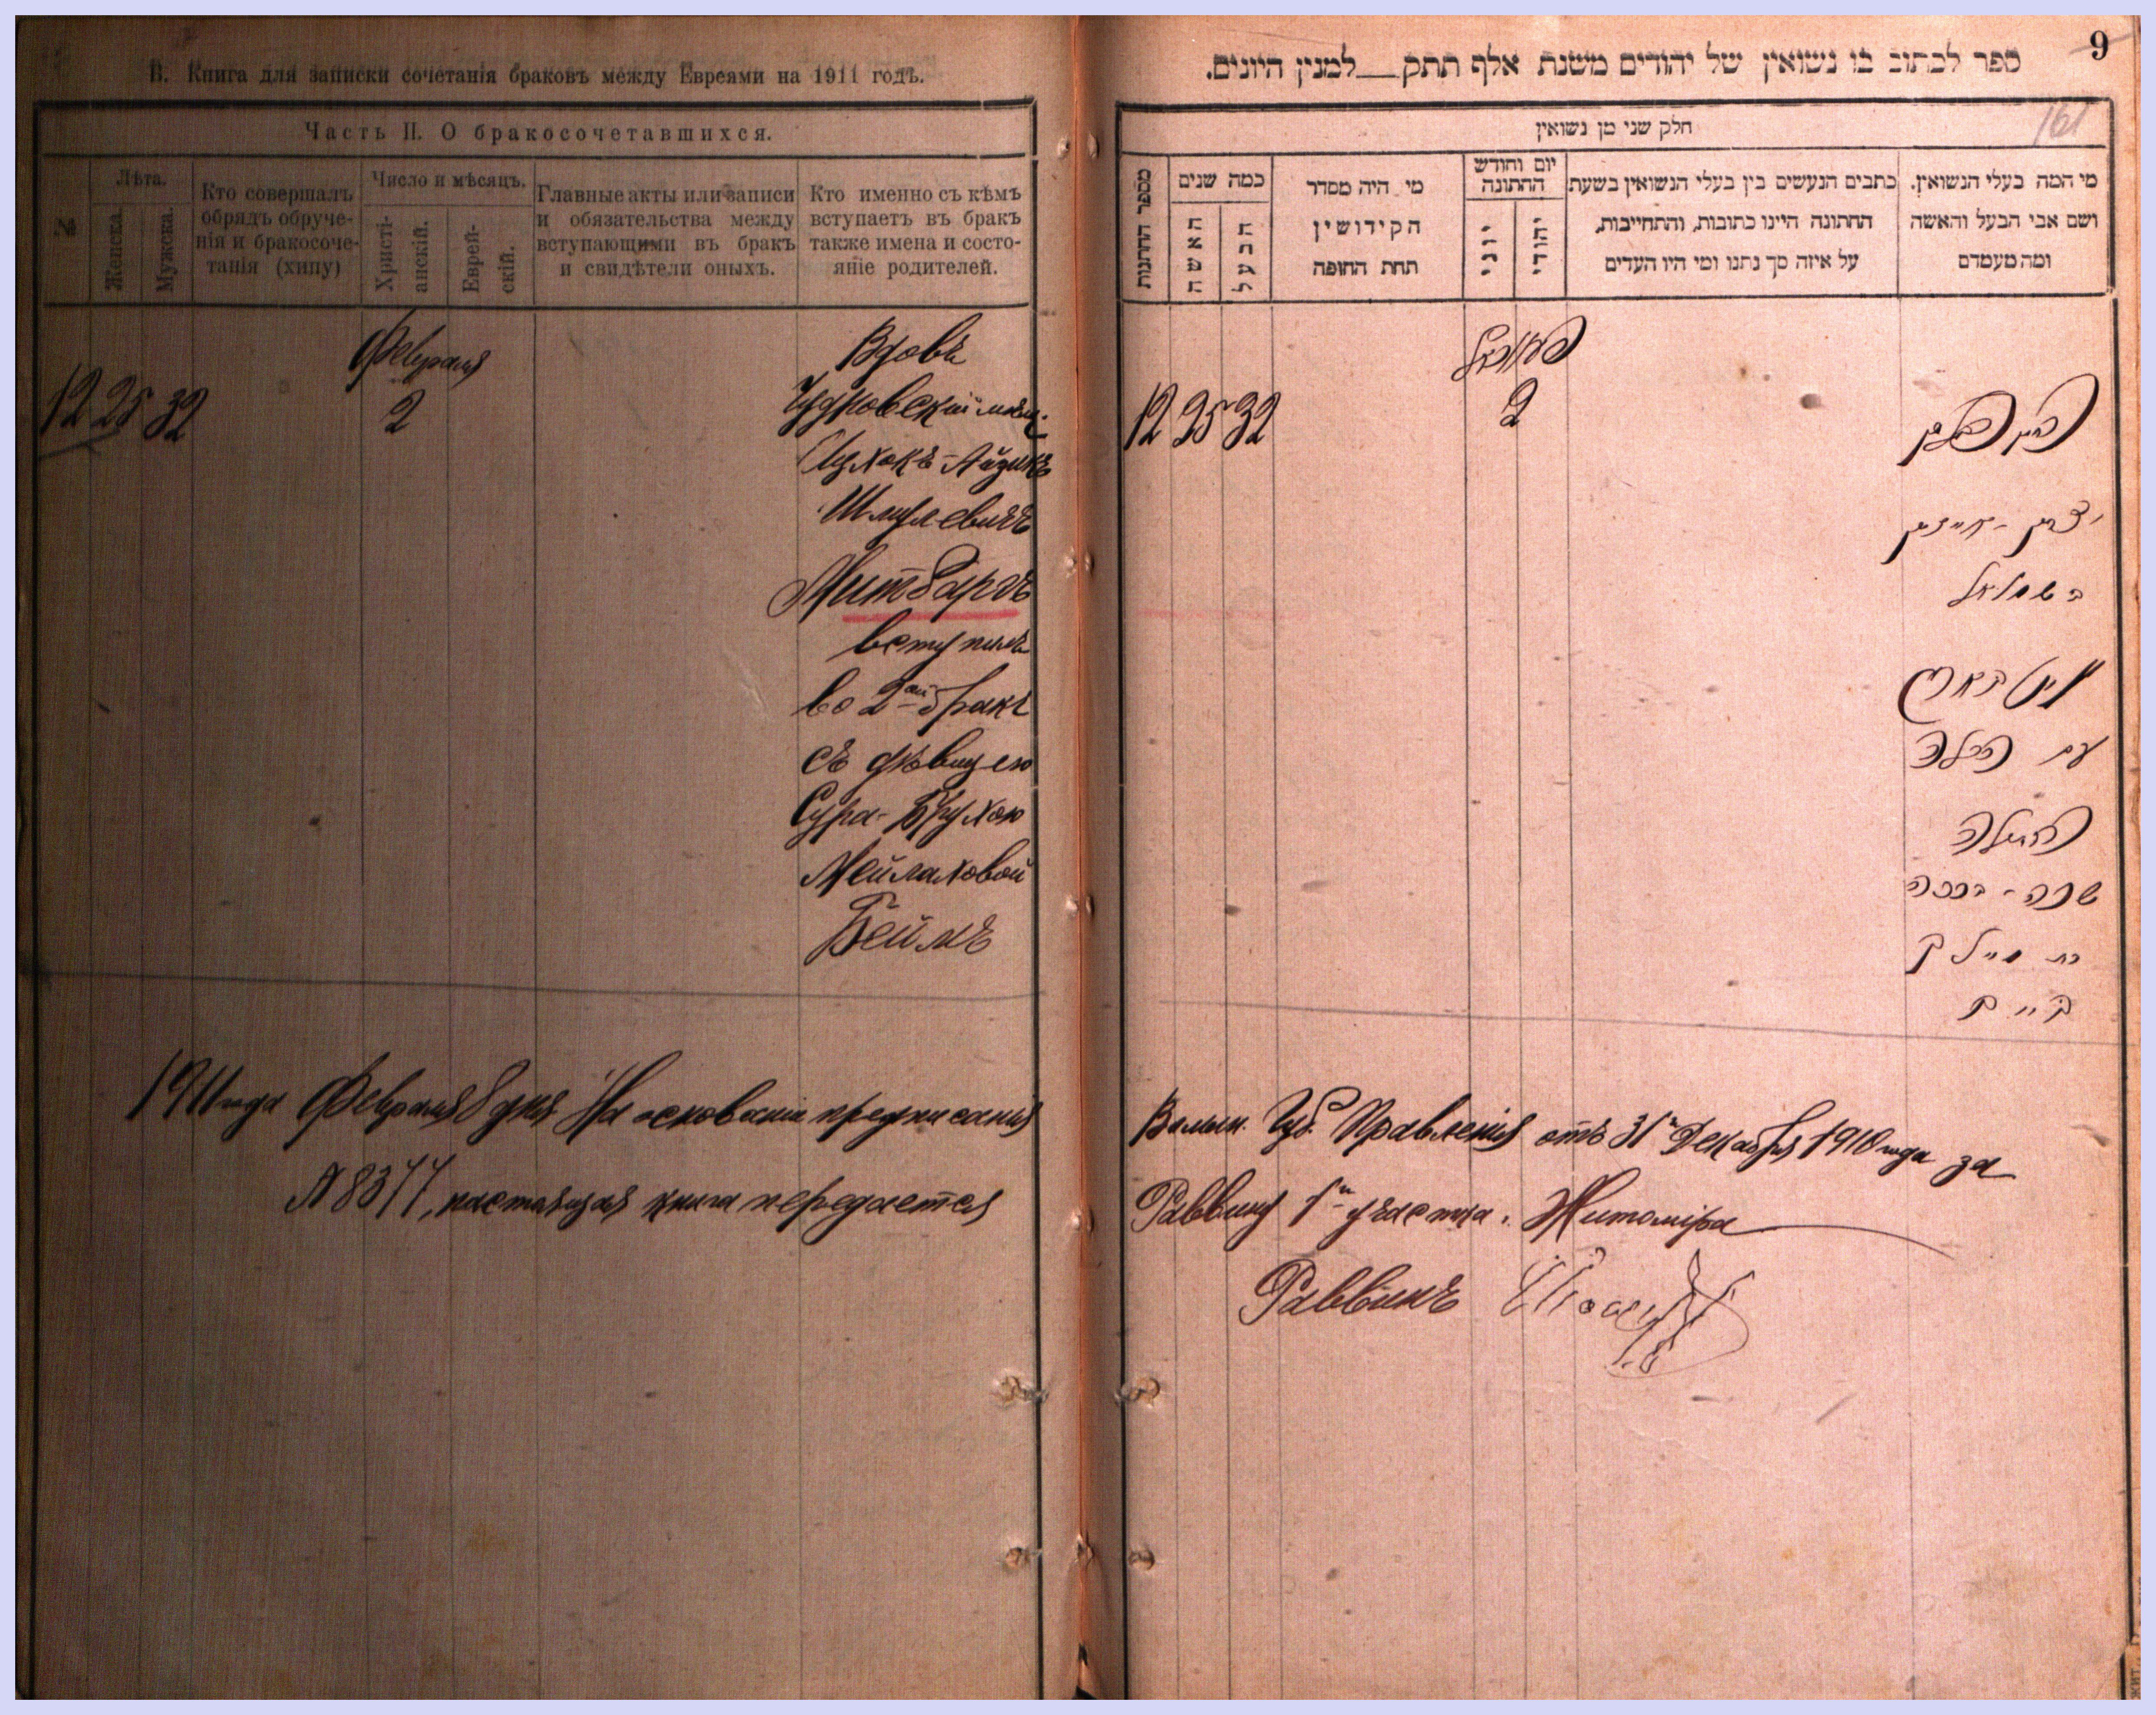 В. Книга для записки сочетанія браковъ между Евреями на 1911 годъ.
Часть II. О бракосочетавшихся.
№
Лѣта.
Женска.
Мужска.
Кто совершалъ
обрядъ обруче-
нія и бракосоче-
танія (хипу)
Число и мѣсяцъ.
Христі-
анскій.
Еврей-
скій.
Главные акты или записи
и обязательства между
вступающими въ бракъ
и свидѣтели оныхъ.
Кто именно съ кѣмъ
вступаетъ въ бракъ
также имена и состо-
яніе родителей.
12 25 32
Февраля
2
Вдовъ
Чудновскій мѣщ.
Ицхокъ-Айзикъ
Шмулевичъ
вступилъ
во 2ой бракъ
съ дѣвицею
Сура-Брухою
Мейлаховой
1911 года Февраля 8 дня На основаніи предписанія
№ 8377, настоящая книга передается
9
161
ספר לכתוב בו נשואין של יהודים משנת אלף תתק__למנין היונים.
חלק שני מן נשואין
מספר החתונות
כמה שנים
האשה
הבעל
מי היה מסדר
הקידושין
תחת החופה
יום וחודש
החתונה
יוני
יהודי
כתבים הנעשים בין בעלי הנשואין בשעת
החתונה היינו כתובות, והתחייבות,
על איזה סך נתנו ומי היו העדים
מי המה בעלי הנשואין.
ושם אבי הבעל והאשה
ומה מעמדם
12 25 32
2
יצחק-אייזיק
ב שמואל
עם
שרה-ברכה
בת מיילך
Волын. Губ. Правленія отъ 31го Декабря 1910 года за
Раввину 1го участка г. Житоміра
Раввинъ